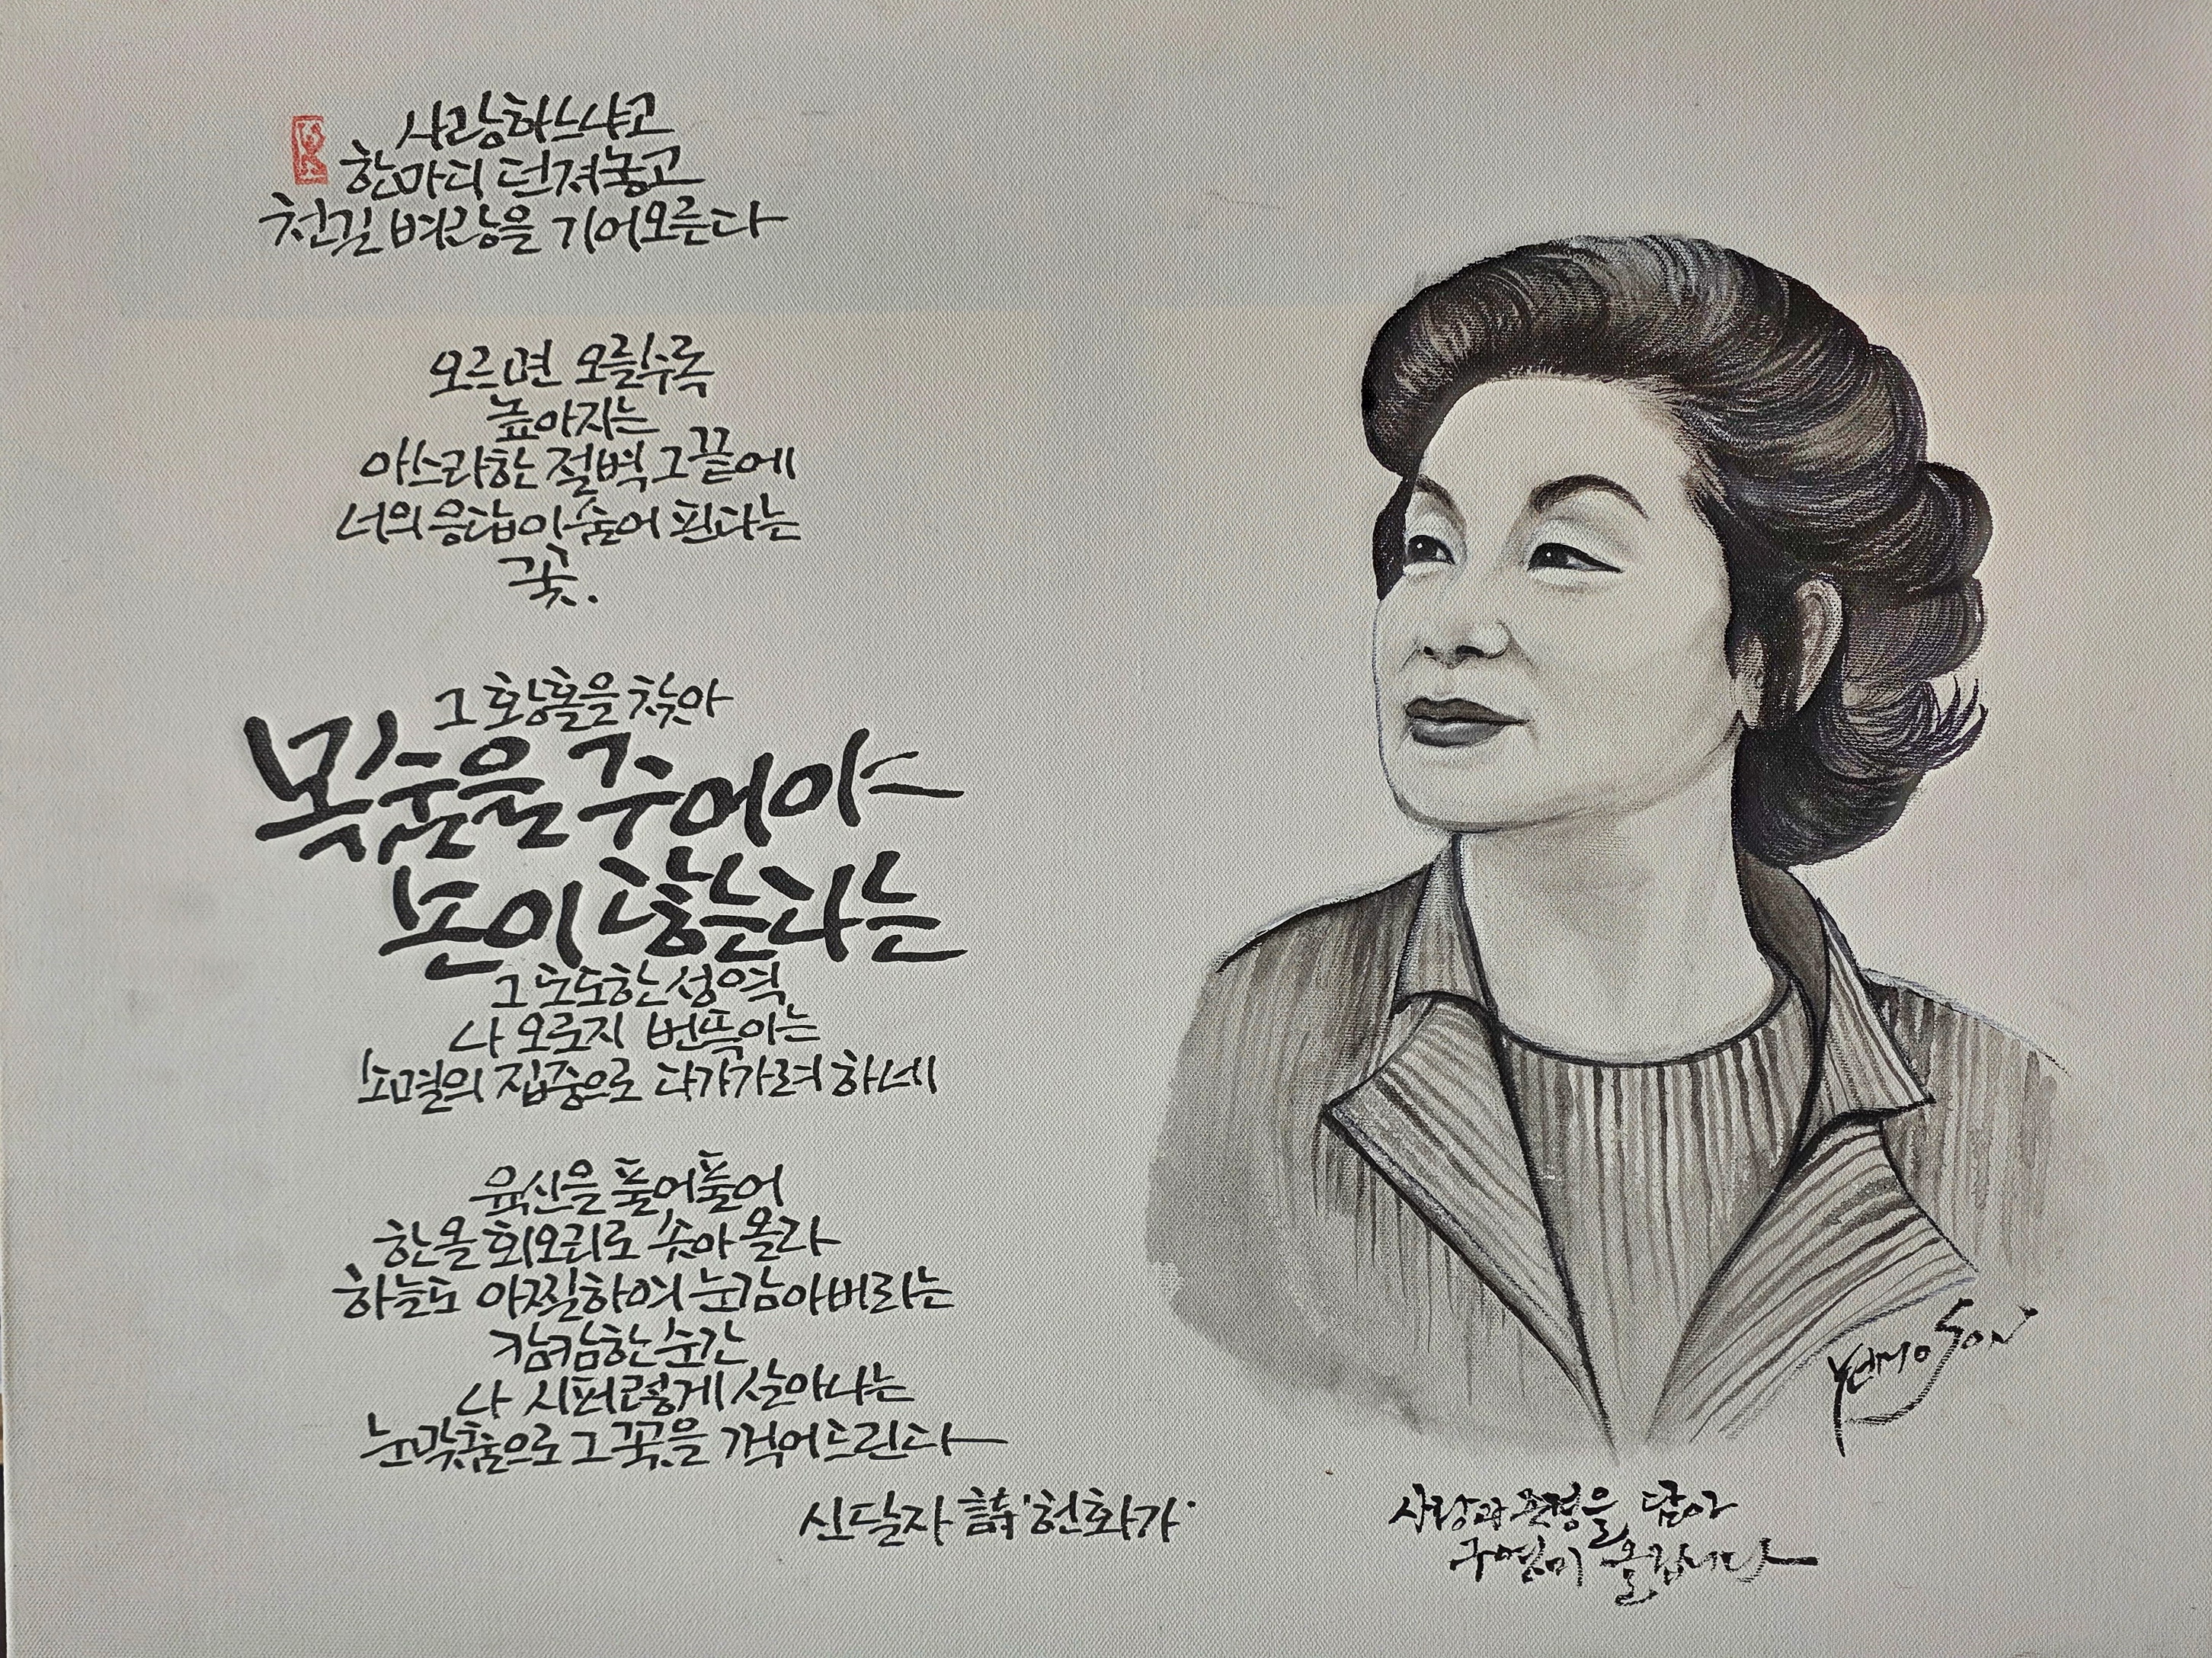 사랑하느냐고
한마디 던져놓고
천길 벼랑을 기어오른다
오르면 오를수록
높아지는
아스라한 절벽 그 끝에
너의 응답이 숨어 핀다는
꽃.
그 황홀을 찾아
목숨을 주어야
손이 닿는다는
그 도도한 성역
나 오로지 번뜩이는
소멸의 집중으로 다가가려 하네
육신을 풀어풀어
한올 회오리로 솟아 올라
하늘도 아찔하여 눈감아버리는
캄캄한 순간
나 시퍼렇게 살아나는
눈맞춤으로 그 꽃을 꺾어드린다
신달자 詩 '헌화가'
SON
사랑과 존경을 담아
구영미 올립니다